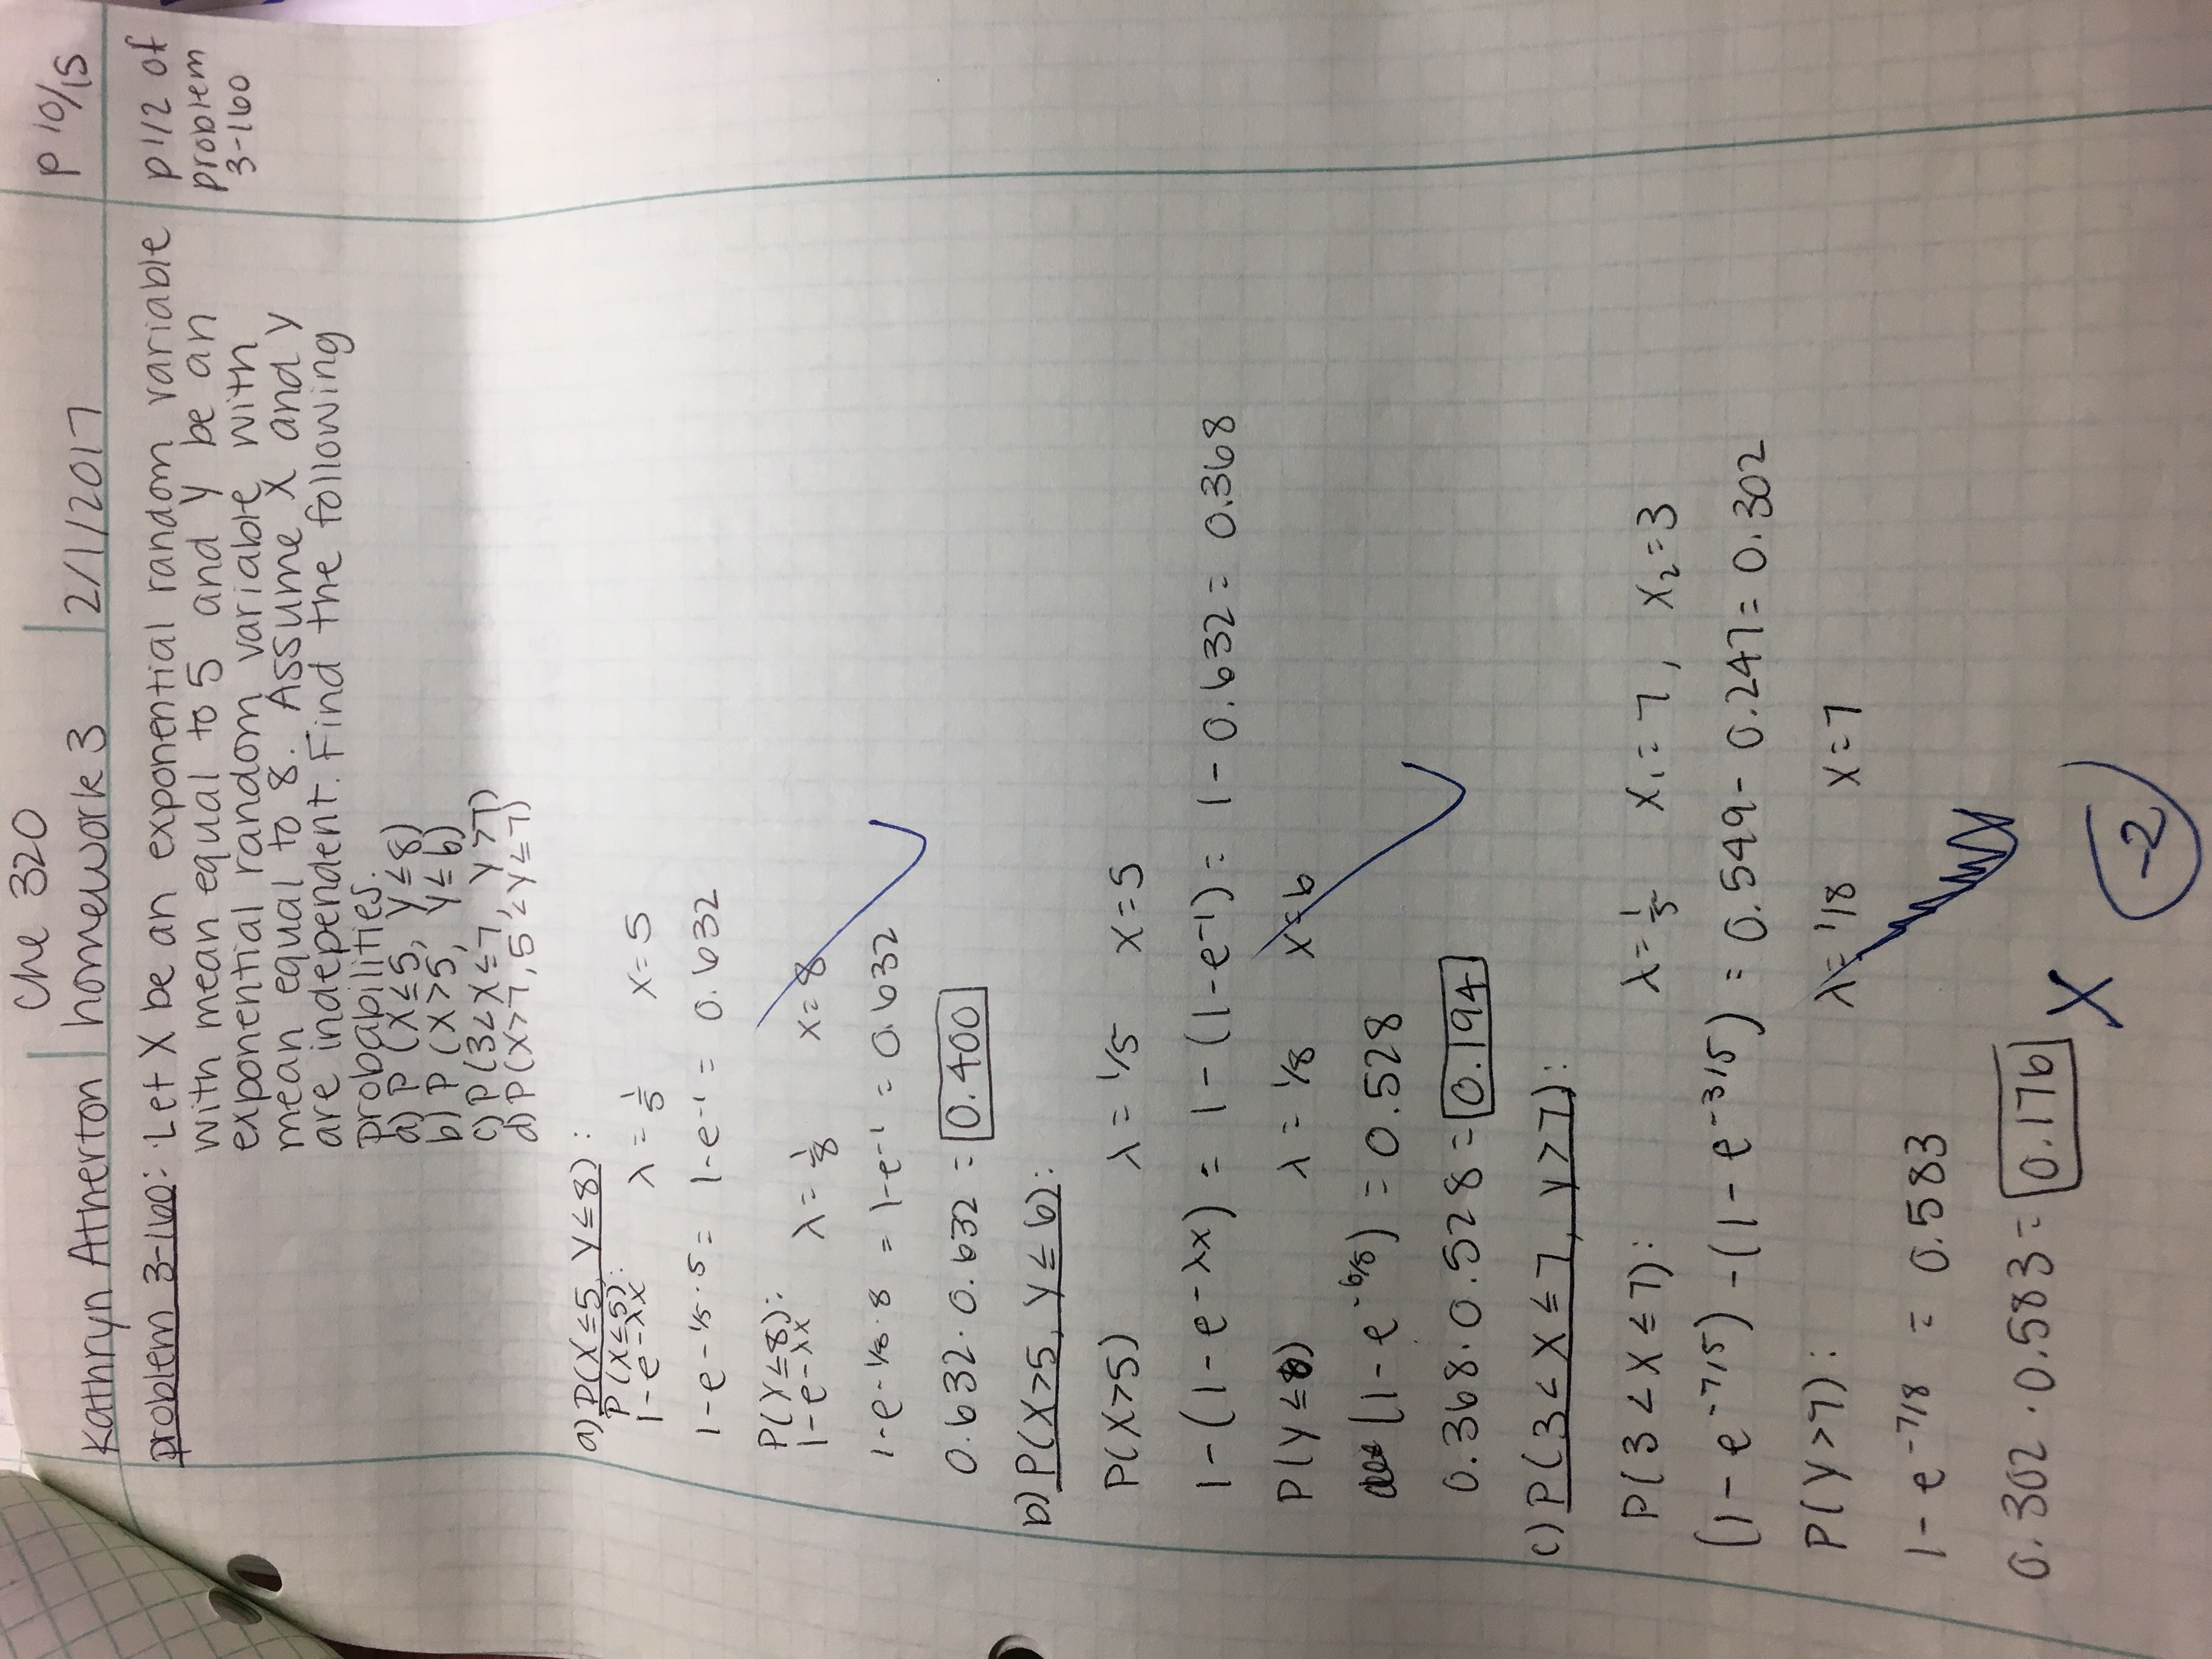 Che 320
Kathryn Atherton homework 3 2/1/2017 p 10/15
problem 3-160: Let X be an exponential random variable p 1/2 of
with mean equal to 5 and Y be an problem
exponential random variable with 3-160
mean equal to 8. Assume X and Y
are independent. Find the following
probabilities.
a) P (X≤5, Y≤8)
b) P (X>5, Y≤6)
c) P(3<X≤7, Y>7)
d) P(X>7, 5<Y≤7)
a) P(X≤5, Y≤8):
P(X≤5):
1-e-λx λ = 1/5 x=5
1-e-1/5·5 = 1-e-1 = 0.632
P(Y≤8):
1-e-λx λ = 1/8 x=8
1-e-1/8·8 = 1-e-1 = 0.632
0.632·0.632 = 0.400
b) P(X>5, Y≤6):
P(X>5) λ = 1/5 x=5
1-(1-e-λx) = 1-(1-e-1) = 1-0.632 = 0.368
P(Y≤6) λ = 1/8 x=6
(1-e-6/8) = 0.528
0.368·0.528 = 0.194
c) P(3<X≤7, Y>7):
P(3<X≤7): λ = 1/5 x1=7, x2=3
(1-e-7/5)-(1-e-3/5) = 0.549-0.247 = 0.302
P(Y>7): λ = 1/8 x=7
1-e-7/8 = 0.583
0.302·0.583 = 0.176
X -2